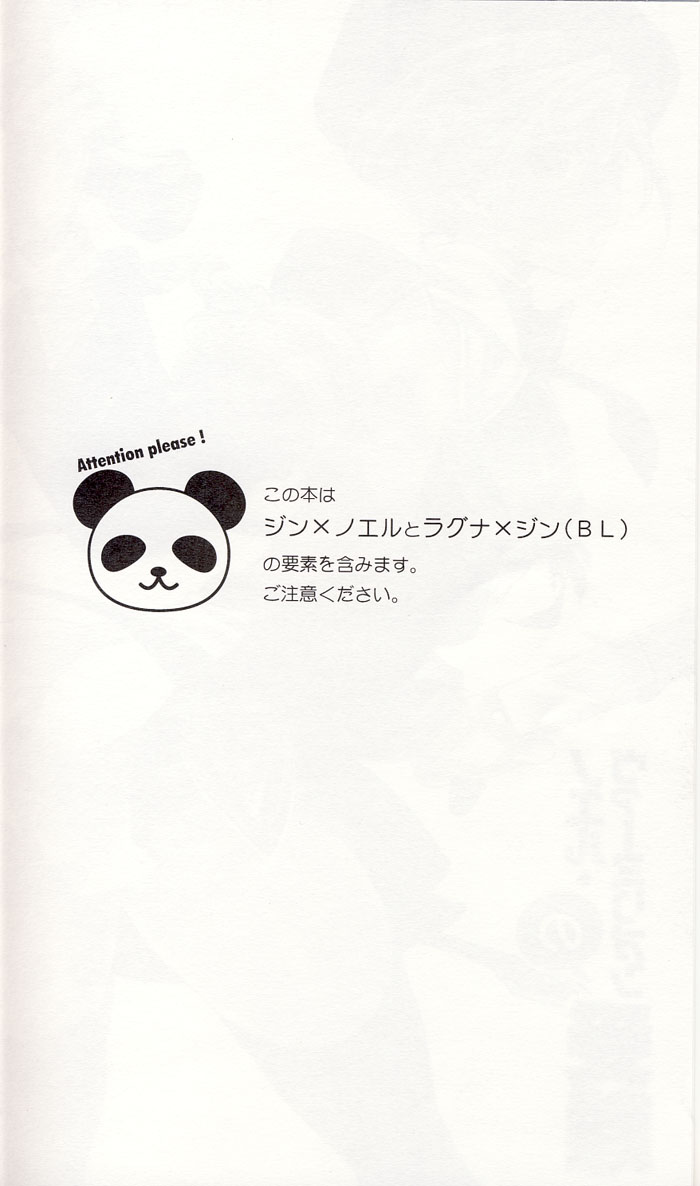 Attention please !
この本は
ジン×ノエルとラグナ×ジン(ＢＬ)
の要素を含みます。
ご注意ください。